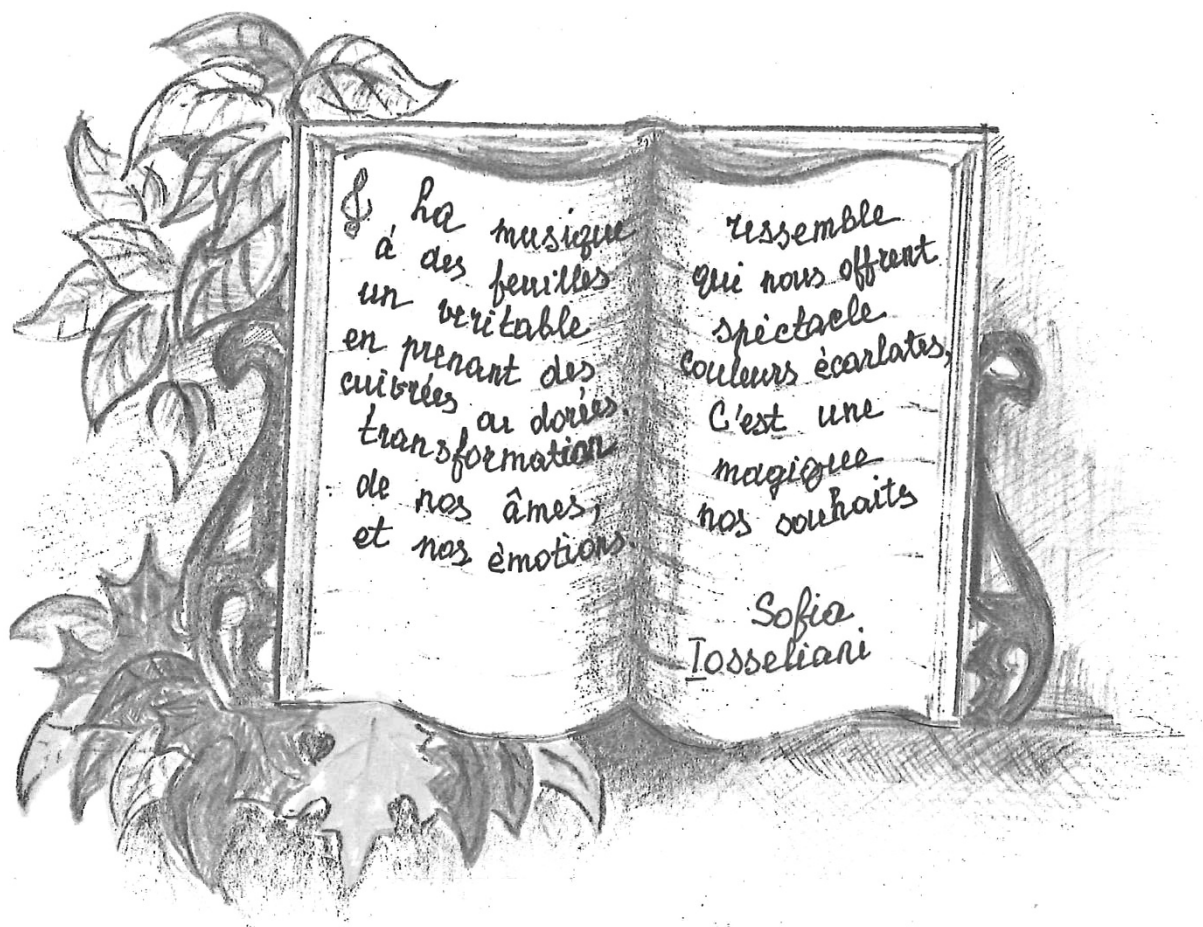 La musique ressemble
à des feuilles qui nous offrent
un veritable spéctacle
en prenant des couleurs écarlates,
cuivrées ou dorées. C'est une
transformation magique
de nos âmes, nos souhaits
et nos èmotions.
Sofia
Iosseliani